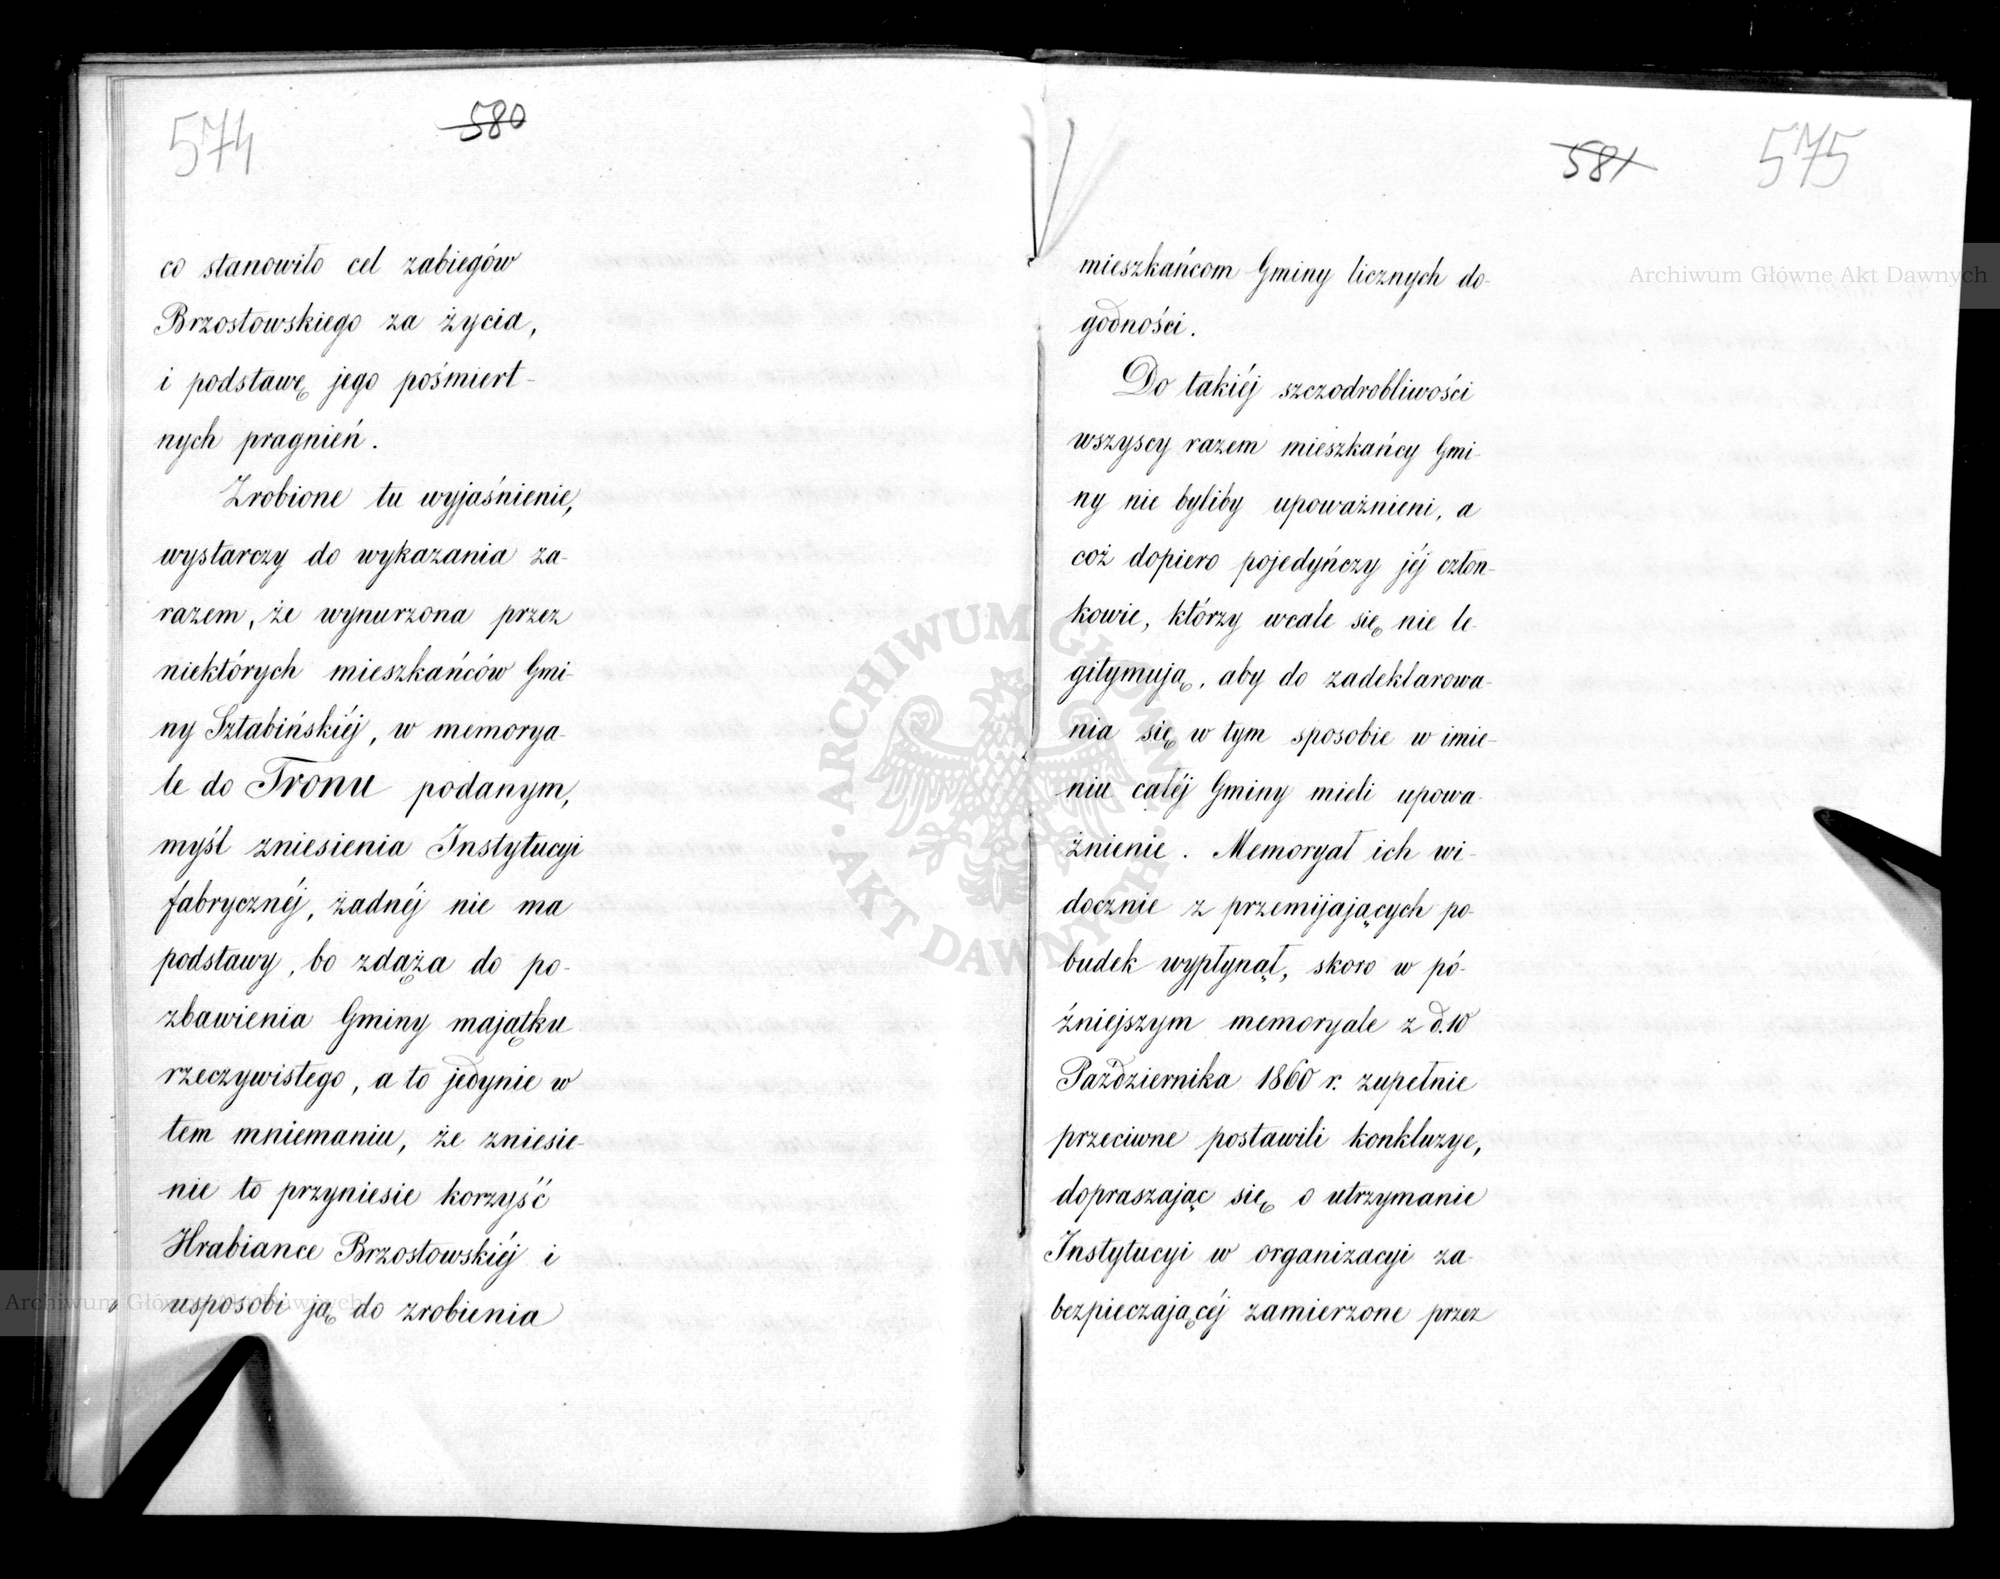 574
580
co stanowiło cel zabiegów
Brzostowskiego za życia,
i podstawę jego pośmiert-
nych pragnień.
Zrobione tu wyjaśnienie,
wystarczy do wykazania za-
razem, że wynurzona przez
niektórych mieszkańców Gmi-
ny Sztabińskiéj, w memorya-
le do Tronu podanym,
myśl zniesienia Instytucyi
fabrycznéj, żadnéj nie ma
podstawy, bo zdąża do po-
zbawienia Gminy majątku
rzeczywistego, a to jedynie w
tem mniemaniu, że zniesie-
nie to przyniesie korzyść
Hrabiance Brzostowskiéj i
usposobi ją do zrobienia
Archiwum Główne Akt Dawnych
581
575
mieszkańcom Gminy licznych do-
godności.
Do takiéj szczodrobliwości
wszyscy razem mieszkańcy Gmi-
ny nie byliby upoważnieni, a
coż dopiero pojedyńczy jéj człon-
kowie, którzy wcale się nie le-
gitymują, aby do zadeklarowa-
nia się w tym sposobie w imie-
niu całéj Gminy mieli upowa-
żnienie. Memoryał ich wi-
docznie z przemijających po-
budek wypłynął, skoro w pó-
źniejszym memoryale z d. 10
Października 1860 r. zupełnie
przeciwne postawili konkluzye,
dopraszając się o utrzymanie
Instytucyi w organizacyi za-
bezpieczającéj zamierzone przez
Archiwum Główne Akt Dawnych
ARCHIWUM GŁÓWNE
AKT DAWNYCH